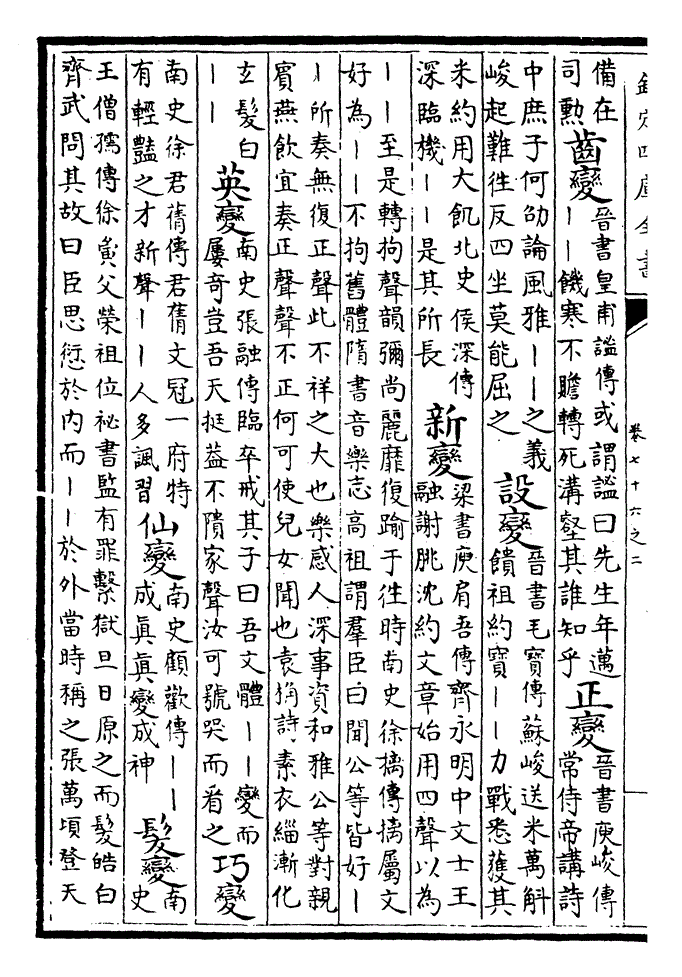 欽定四庫全書
卷七十六之二
備在
司勲
齒變
晉書皇甫謐傳或謂謐曰先生年邁
丨丨饑寒不贍轉死溝壑其誰知乎
正變
晉書庾峻傳
常侍帝講詩
中庶子何劭論風雅丨丨之義
峻起難徃反四坐莫能屈之
設變
晉書毛寶傳蘇峻送米萬斛
饋祖約寶丨丨力戰悉獲其
米約用大飢北史侯深傳
深臨機丨丨是其所長
新變
梁書庾肩吾傳齊永明中文士王
融謝朓沈約文章始用四聲以為
丨丨至是轉拘聲韻彌尚麗靡復踰于徃時南史徐摛傳摛屬文
好為丨丨不拘舊體隋書音樂志高祖謂羣臣曰聞公等皆好丨
丨所奏無復正聲此不祥之大也樂感人深事資和雅公等對親
賓燕飲宜奏正聲聲不正何可使兒女聞也袁桷詩素衣緇漸化
玄髮白
丨丨
英變
南史張融傳臨卒戒其子曰吾文體丨丨變而
屢奇豈吾天挺葢不隤家聲汝可號哭而看之
巧變
南史徐君蒨傳君蒨文冠一府特
有輕豔之才新聲丨丨人多諷習
仙變
南史顧歡傳丨丨
成眞眞變成神
髮變
南
史
王僧孺傳徐夤父榮祖位祕書監有罪繫獄旦日原之而髮皓白
齊武問其故曰臣思愆於内而丨丨於外當時稱之張萬頃登天